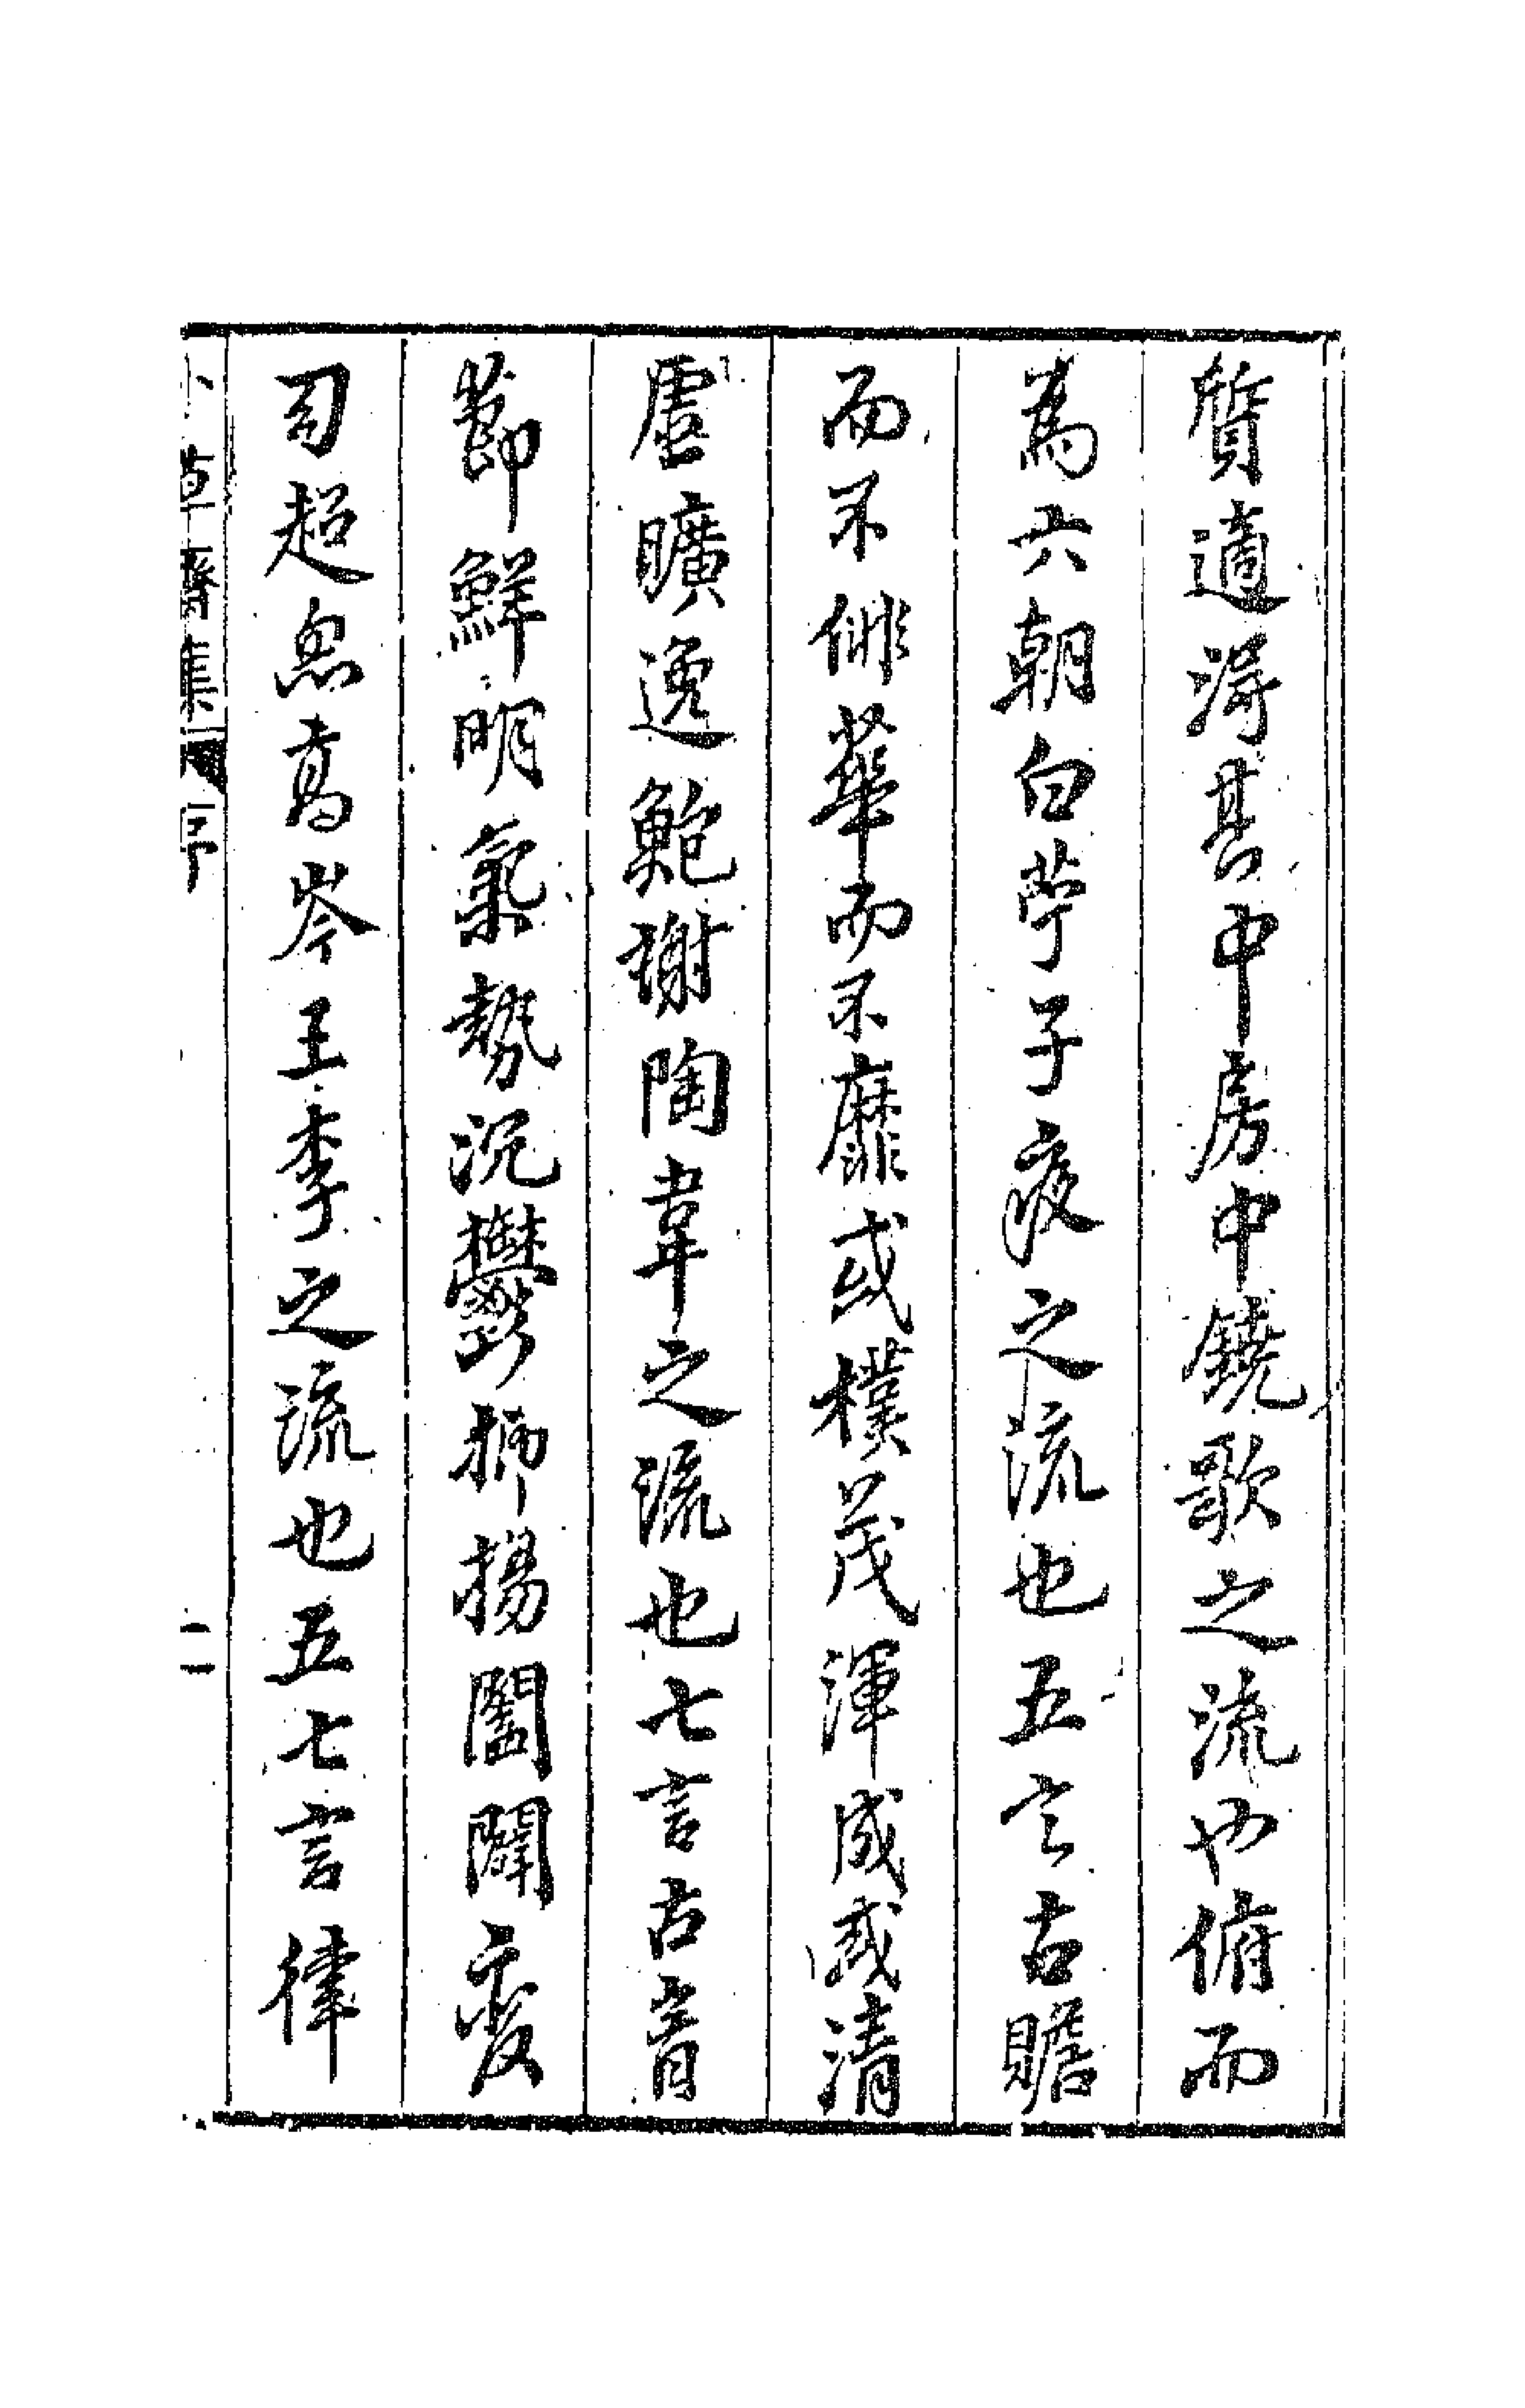 質適淂其中房中鐃歌之流也俯而
為六朝白苧子夜之流也五言古贍
而不俳華而不靡或樸茂渾成或清
虛曠逸鮑謝陶韋之流也七言古音
節鮮明氣勢沉鬱抑揚闔闢變
幻超忽高岑王李之流也五七言律
小草齋集 序 二